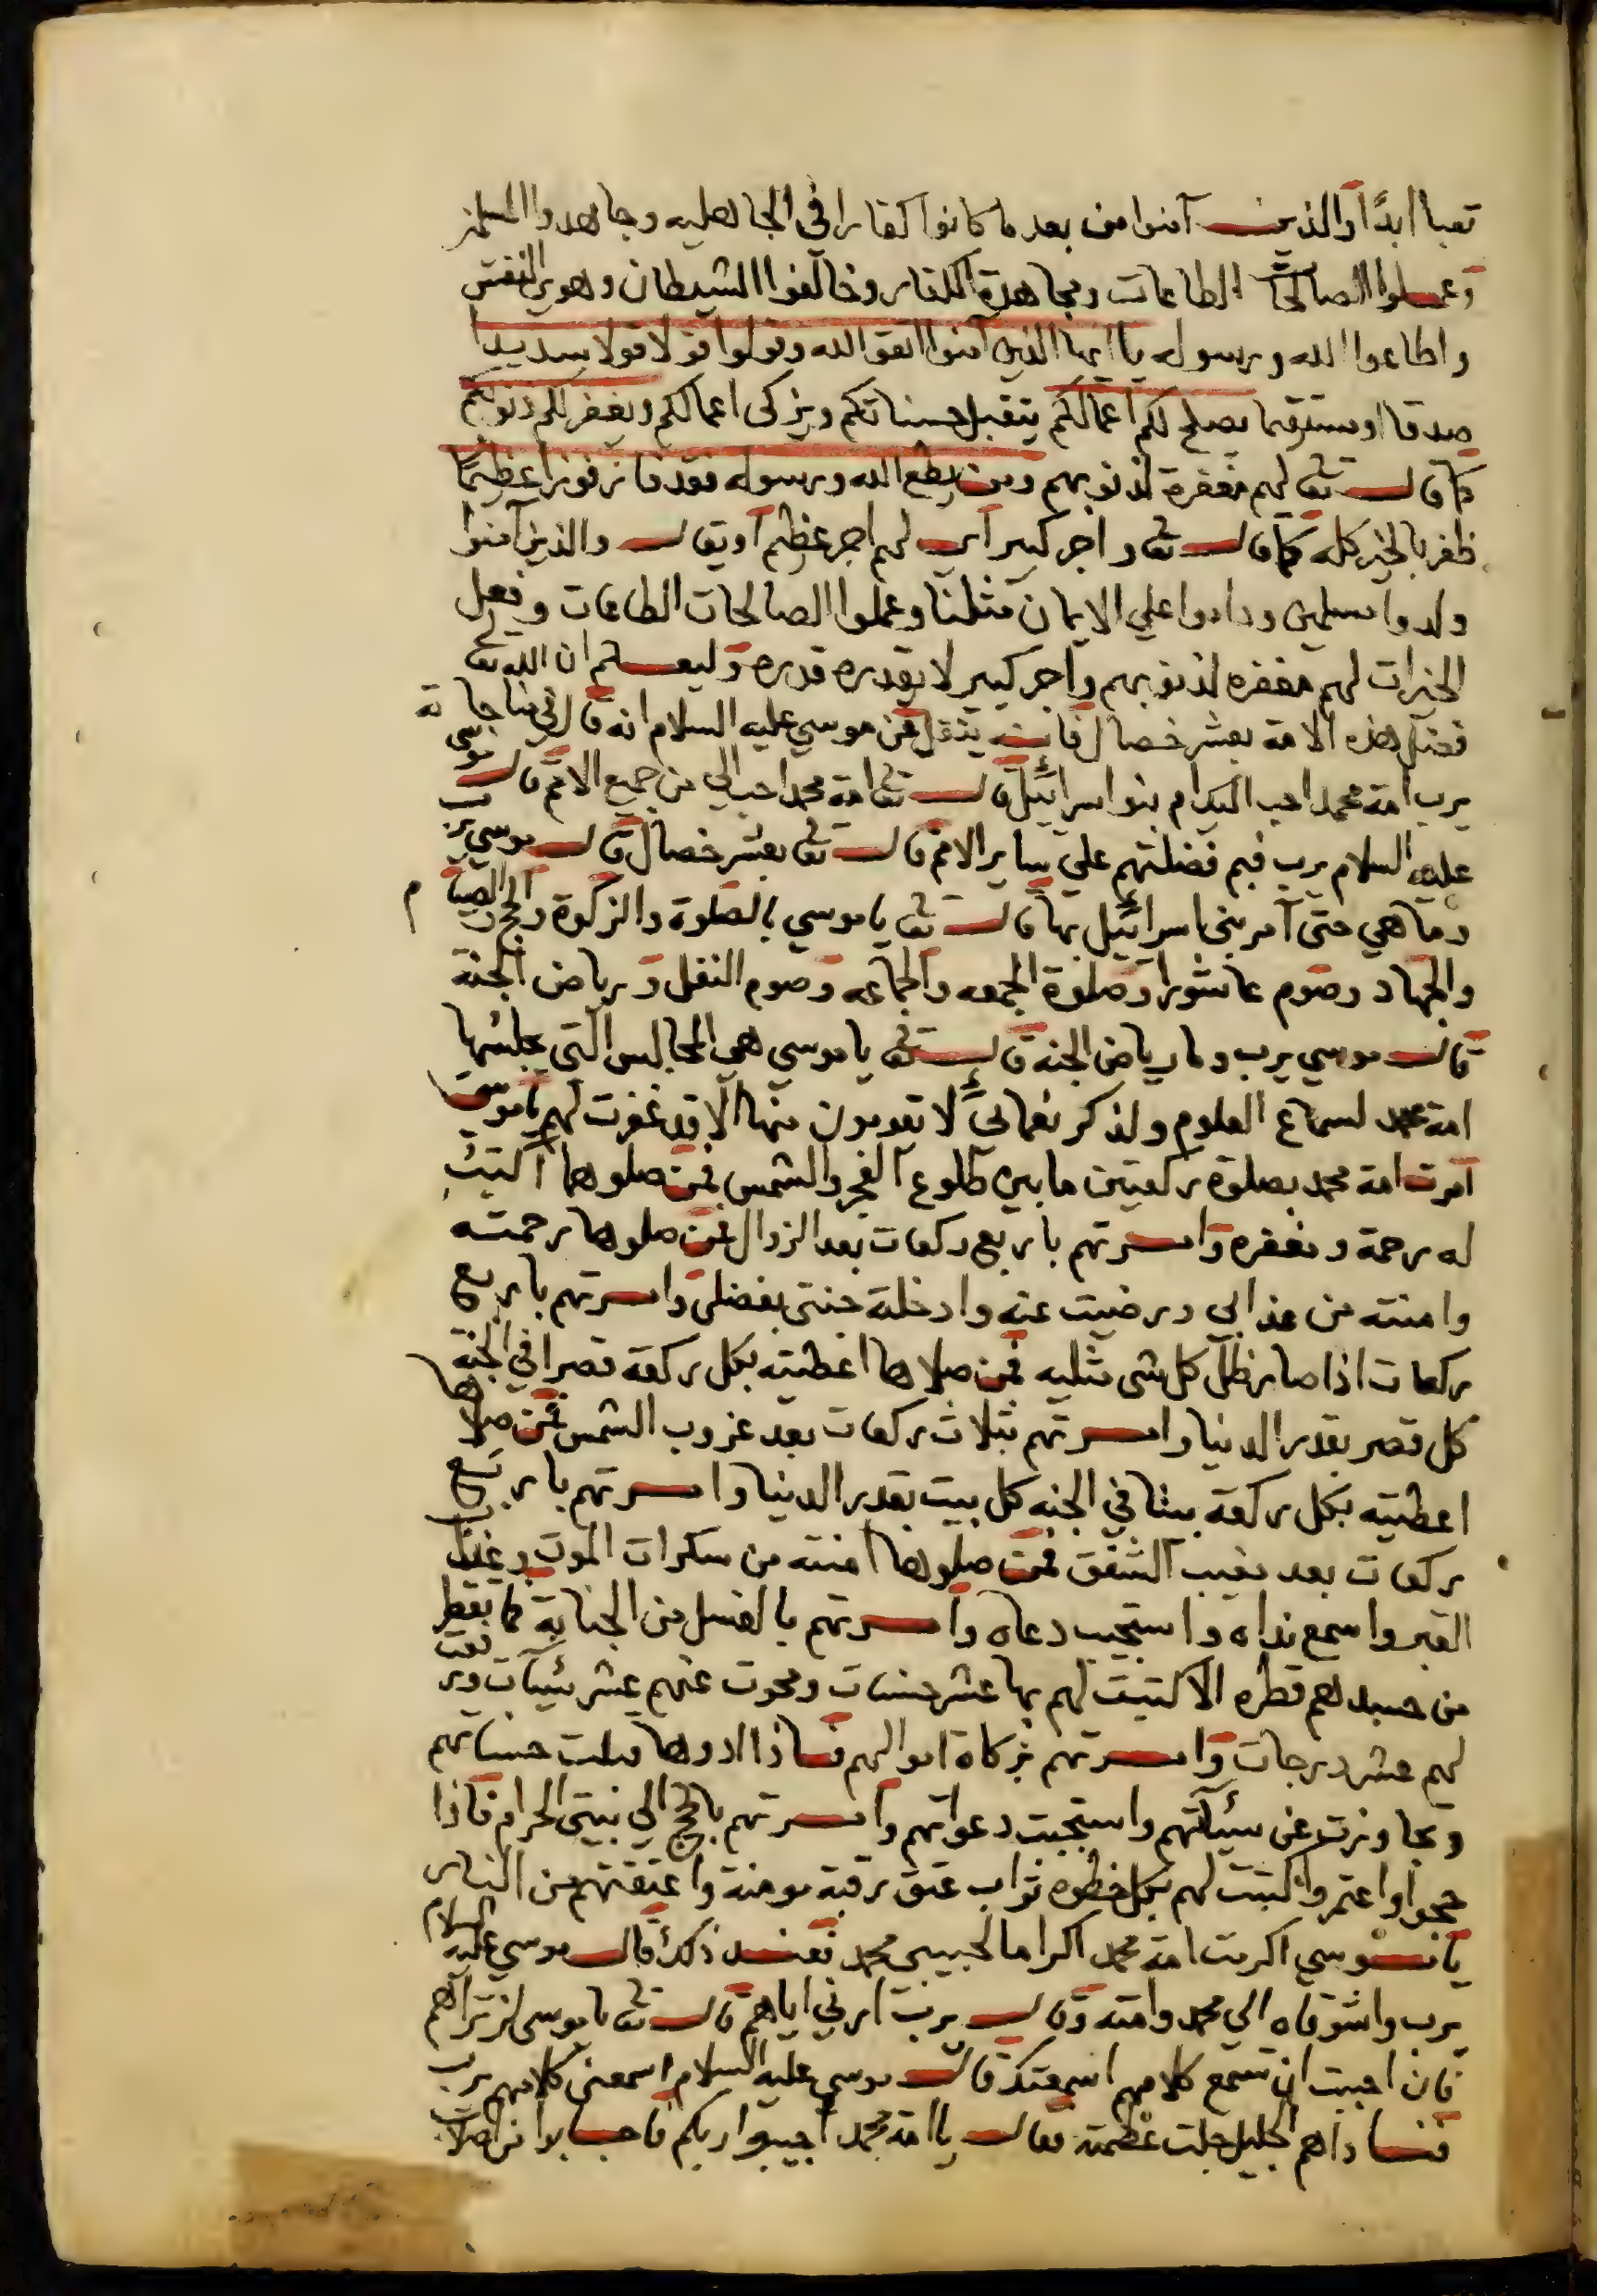 تعبا ابدًا والذين آمنوا من بعد ما كانوا كفارا في الجاهليه وجاهدوا
وعملوا الصالحات الطاعات ومجاهدة الكفار وخالفوا الشيطان وهوى النفس
واطاعوا الله ورسوله يا ايها الذين آمنوا اتقوا الله وقولوا قولا قولا سديدا
صدقا او مستقيما يصلح لكم اعمالكم يتقبل حسناتكم ويزكى اعمالكم ويغفر لكم ذنوبكم
كما قال تعا لهم مغفرة لذنوبهم ومن يطع الله ورسوله فقد فاز فوزا عظيمًا
ظفر بالخير كله كما قال تعا واجر كبير اى لهم اجر عظيم او يقال والذين آمنوا
ولدوا مسلمين وداموا علي الايمان مثلنا وعملوا الصالحات الطاعات وفعل
الخيرات لهم مغفره لذنوبهم واجر كبير لا يقدره قدره وليعلم ان الله تعا
فضل هذه الامة بعشر خصال فانه ينقل عن موسي عليه السلام انه قال في مناجاته
يرب امة محمد احب اليك ام بنو اسرائيل قال تعا امة محمد احب الي من جميع الامم قال موسي
عليه السلام يرب فبم فضلتهم علي ساير الامم قال تعا بعشر خصال قال موسي يرب
وما هي حتى آمر بني اسرائيل بها قال تعا يا موسي بالصلوة والزكوة والحج والصيام
والجهاد وصوم عاشورا وصلوة الجمعه والجماعه وصوم النفل ورياض الجنة
قال موسي يرب وما رياض الجنة قال تعا يا موسي هي المجالس التي يجلسها
امة محمد لسماع العلوم ولذكر نعمائي لا يقومون منها الا قد غفرت لهم يا موسي
امرت امة محمد بصلوة ركعتين ما بين طلوع الفجر والشمس فمن صلوها اكتب
له رحمة ومغفره وامرتهم باربع ركعات بعد الزوال فمن صلوها رحمته
وامنته من عذابي ورضيت عنه وادخلته جنتى بفضلى وامرتهم باربع
ركعات اذا صار ظل كل شى مثليه فمن صلاها اعطيته بكل ركعة قصرا في الجنة
كل قصر بقدر الدنيا وامرتهم بثلاث ركعات بعد غروب الشمس فمن صلاها
اعطيته بكل ركعة بيتا في الجنه كل بيت بقدر الدنيا وامرتهم باربع
ركعات بعد مغيب الشفق فمن صلوها امنته من سكرات الموت وعذاب
القبر واسمع نداه واستجيب دعاه وامرتهم بالغسل من الجنابة فما يقطر
من جسدهم قطره الا كتبت لهم بها عشر حسنات ومحوت عنهم عشر سيئات ورفعت
لهم عشر درجات وامرتهم بزكاة اموالهم فاذا ادوها قبلت حسناتهم
وتجاوزت عن سيئاتهم واستجبت دعواتهم وامرتهم بالحج الي بيتى الحرام فاذا
حجوا او اعتمروا كتبت لهم بكل خطوه ثواب عتق رقبة مومنة واعتقتهم من النار
يا موسي اكرمت امة محمد اكراما لحبيبى محمد فعند ذلك قال موسي عليه السلام
يرب واشوقاه الي محمد وامته وقال يرب ارني اياهم قال تعا يا موسى لن تراهم
فان احببت ان تسمع كلامهم اسمعتك قال موسي عليه السلام اسمعنى كلامهم يرب
فناداهم الجليل جلت عظمته فقال يا امة محمد اجيبوا ربكم فاجابوا من اصلاب